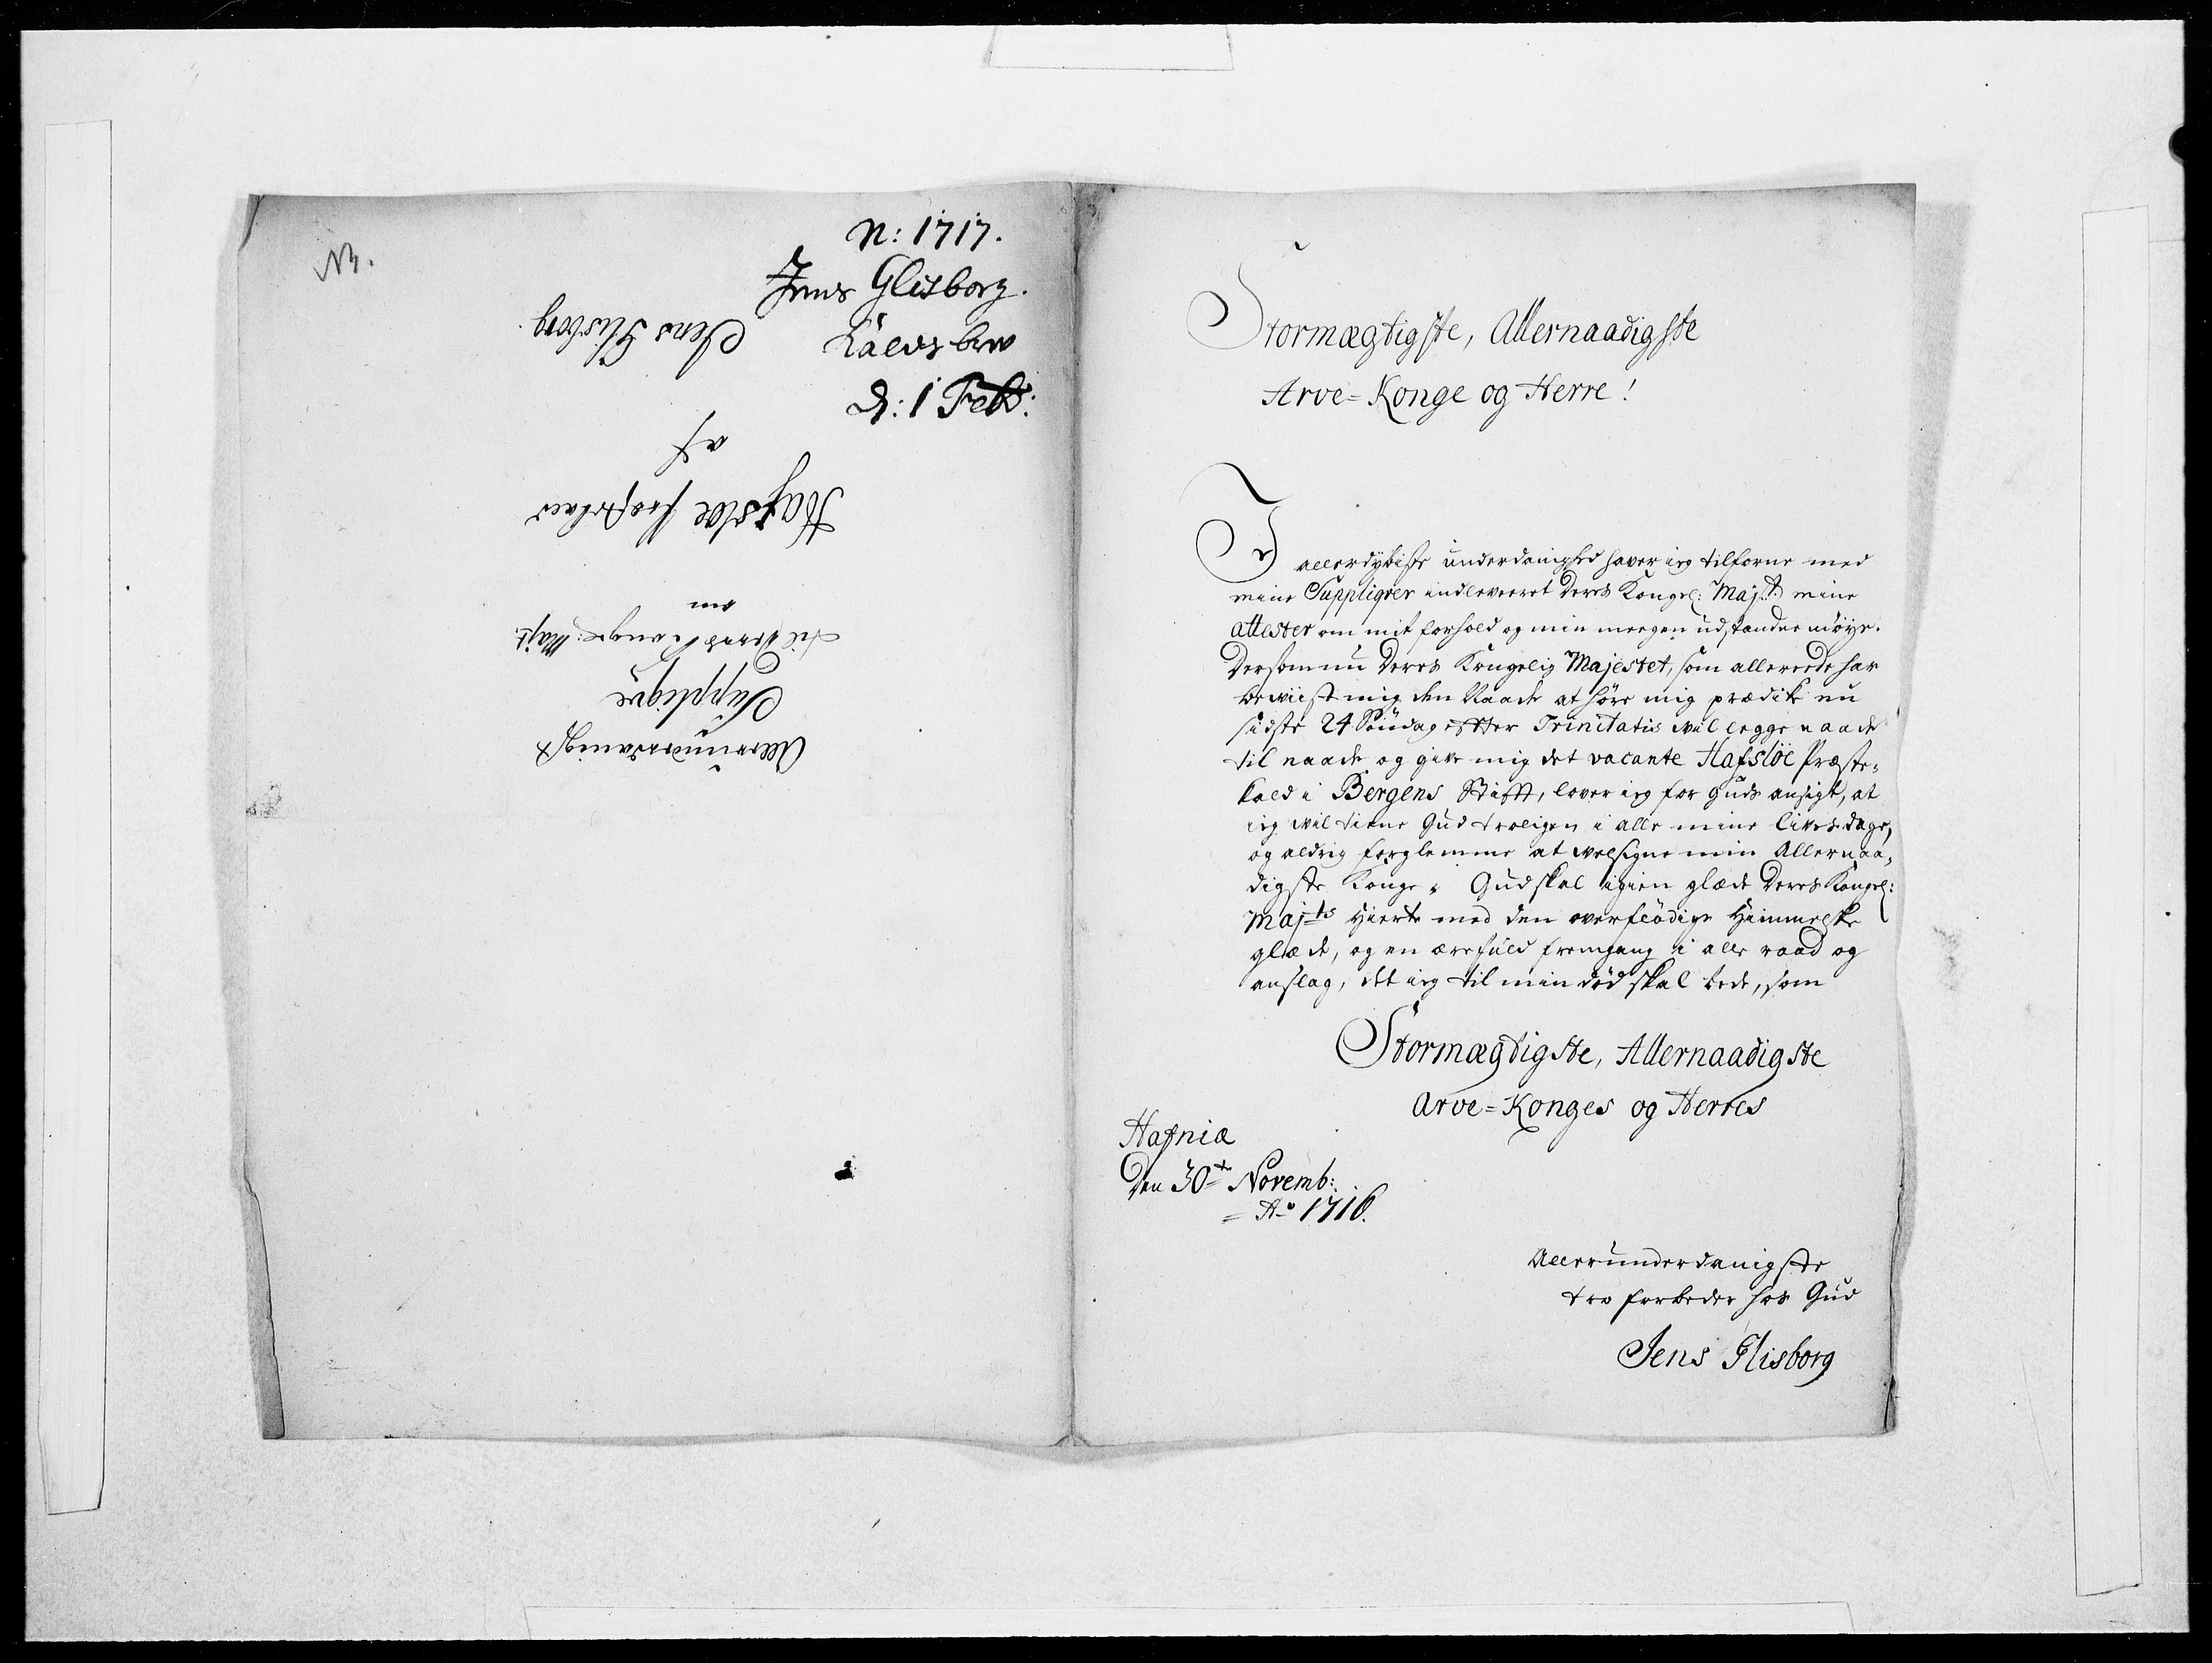 N:
N: 1717.
Jens Glisborg.
Kaldsbrev
d: 1 Feb:
Allerunderdanigst
Supplique
til Deres Kongel: Majt.
om
Hafsløe Præstekald
af
Jens Glisborg.
Stormægtigste, Allernaadigste
Arve-Konge og Herre!
I allerdybiste underdanighed haver ieg tilforne med
mine Suppliqver indleveeret Deres Kongel: Maj.t. mine
attester om mit forhold og min megen udstandne møye.
Dersom nu Deres Kongelig Majestet, som allereede har
beviist mig den Naade at høre mig prædike nu
sidste 24 Søndag effter Trinitatis wil legge naade
til naade og give mig det vacante Hafsløe Præste-
kald i Bergens Stifft, lover ieg for Guds ansigt, at
ieg wil tiene Gud troligen i alle mine Livs dage,
og aldrig forglemme at welsigne min Allernaa-
digste Konge. Gud skal igien glæde Deres Kongel:
Maj.ts Hierte med den overflødige Himmelske
glæde, og en ærefuld fremgang i alle raad og
anslag, det ieg til min død skal bede, som
Stormægtigste, Allernaadigste
Arve-Konges og Herres
Hafniæ
Den 30te Novemb:
Ao 1716.
Allerunderdanigste
tro forbeder hos Gud
Jens Glisborg